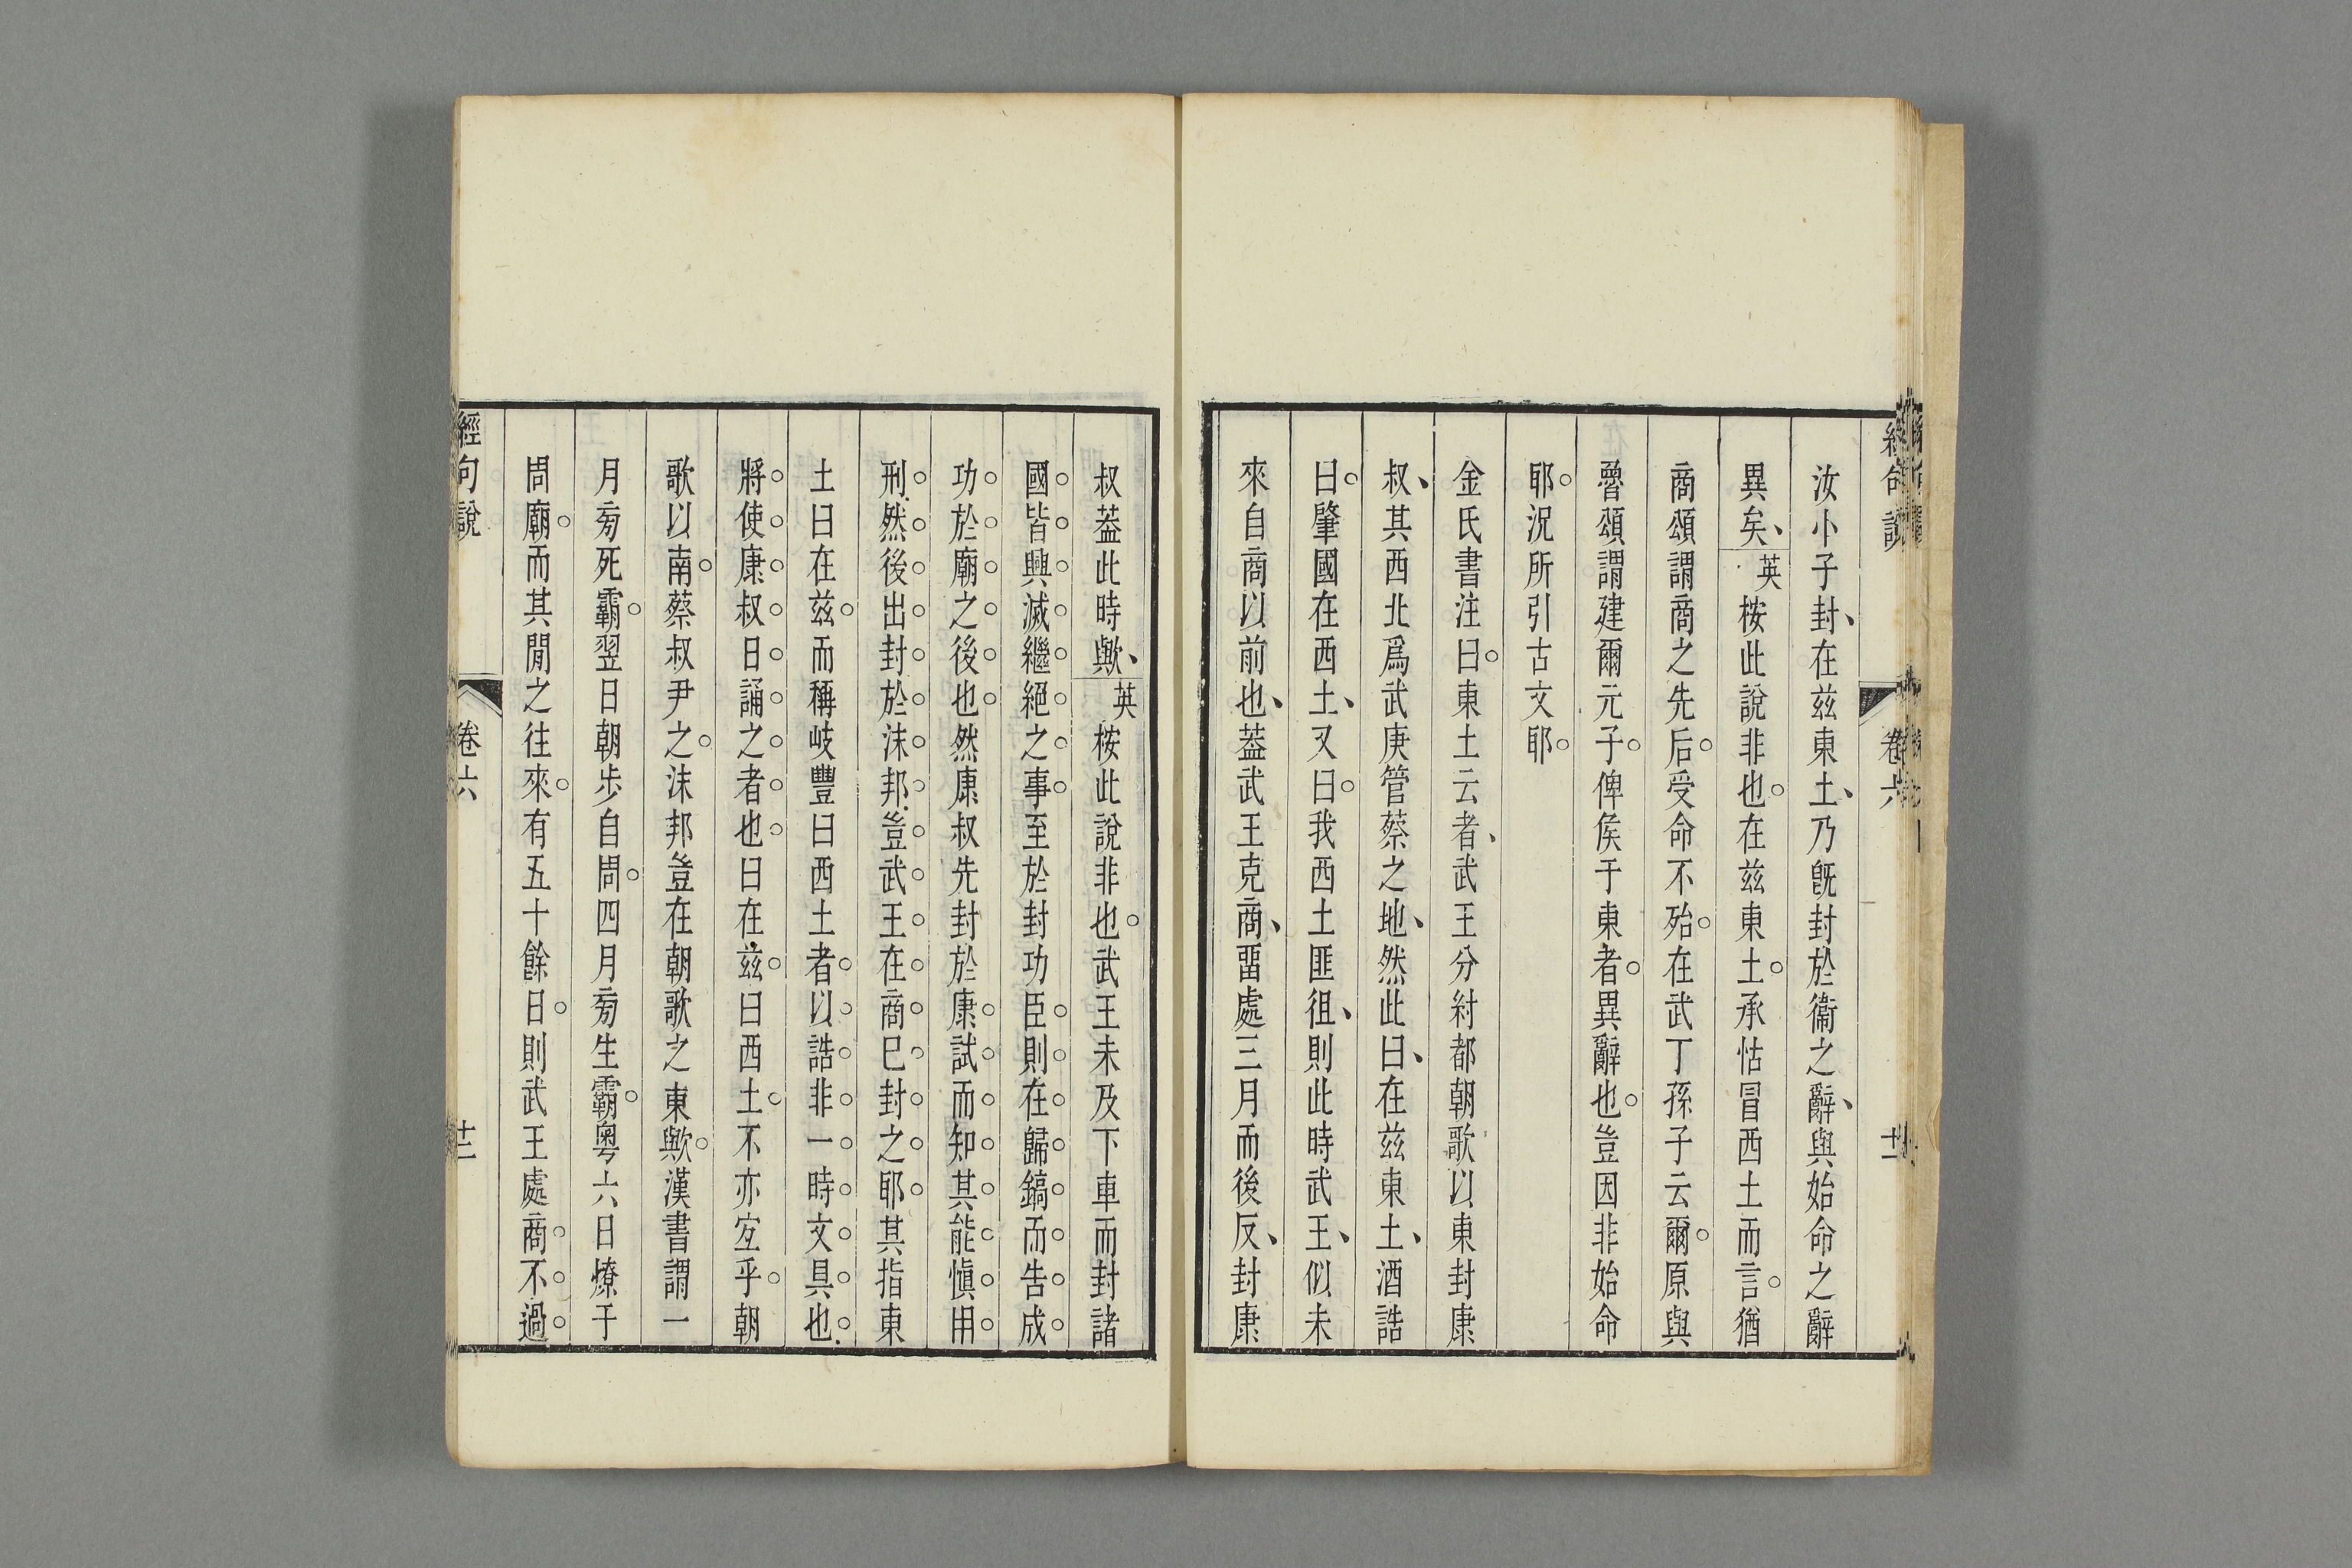 經句說
卷六
十一
汝小子封、在茲東土、乃旣封於衞之辭、與始命之辭
異矣、英桉此說非也。在茲東土。承怙冒西土而言。猶
商頌謂商之先后。受命不殆。在武丁孫子云爾。原與
魯頌謂建爾元子。俾侯于東者。異辭也。豈因非始命
耶。況所引古文耶。
金氏書注曰。東土云者、武王分紂都朝歌以東封康
叔、其西北爲武庚管蔡之地、然此曰、在茲東土、酒誥
曰。肇國在西土、又曰。我西土匪徂、則此時武王、似未
來自商以前也、葢武王克商、畱處三月而後反、封康
叔葢此時歟、英桉此說非也。武王未及下車而封諸
國。皆。興。滅。繼。絕。之。事。至於封功臣。則。在。歸。鎬。而。告。成。
功。於。廟。之。後。也。然康叔先封於康。試。而。知。其。能。愼。用。
刑。然。後。出。封。於。沬。邦。豈。武。王。在。商。已。封。之。耶。其指東
土曰在茲。而稱岐豐曰西土者。以。誥。非。一。時。文。具。也。
將。使。康。叔。日。誦。之。者。也。曰在茲。曰西土。不亦宐乎。朝
歌以南。蔡叔尹之。沬邦豈在朝歌之東歟。漢書謂一
月㫄死霸。翌日朝步自周。四月㫄生霸。粵六日燎于
周廟。而其閒之往來。有五十餘日。則武王處商。不。過。
經句說
卷六
十二